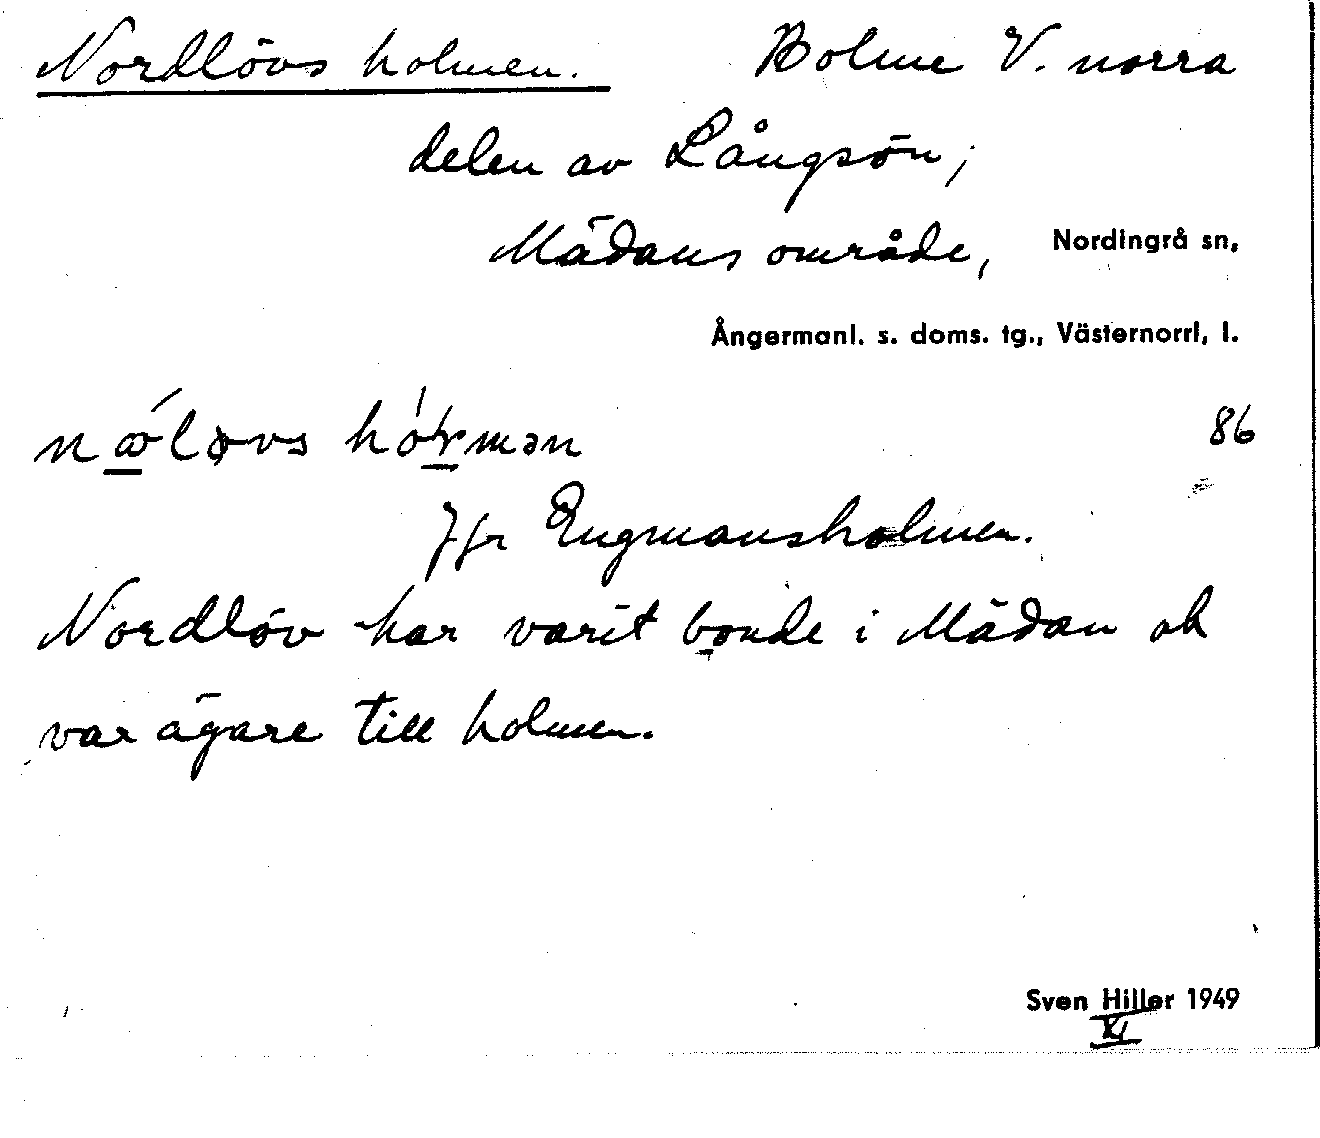 Nordlövs holmen. Holme V. norra
delen av Långsön,
Mädans område, Nordingrå sn,
Ångermanl. s. doms. tg., Västernorrl, l.
86
Jfr Engmansholmen.
Nordlöv har varit bonde i Mädan ok
var ägare till holmen.
Sven Hiller 1949
XI